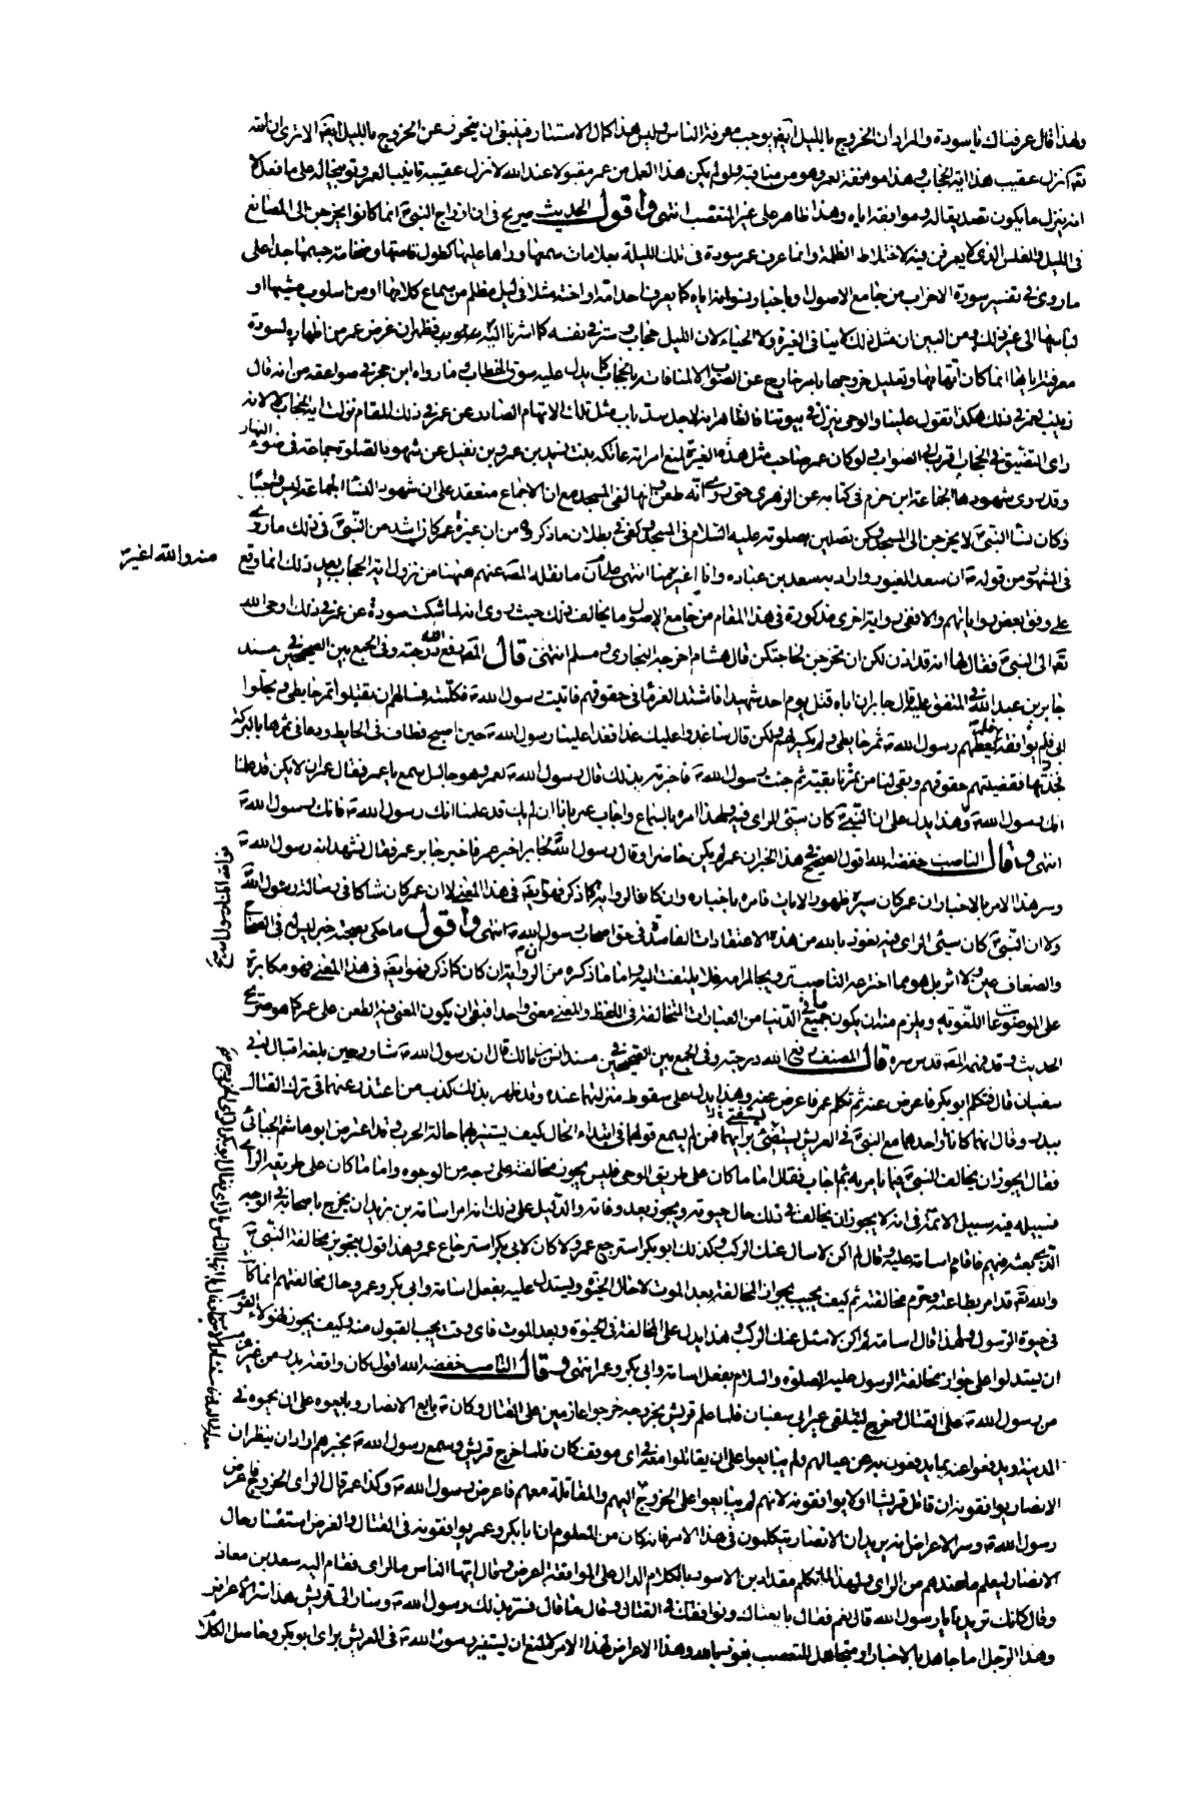 ولهذا قال عرفناك يا سودة والمراد ان الخروج بالليل ايضا يوجب معرفة الناس وليس هذا كمال الاستتار فينبغى ان يتحرز عن الخروج بالليل ايضا الا ترى ان الله
تعالى انزل عقيب هذا اية الحجاب وهذا موافقة لعمر وهو من مناقبه ولو لم يكن هذا العمل من عمر مقبولا عند الله لا نزل عقيبه تاديب العمر وتوبيخا له على ما فعل لا
انه ينزل ما يكون تصديقا له وموافقة اياه وهذا ظاهر على غير المتعصب انتهى واقول الحديث صريح فى ان ازواج النبى انما كانوا يخرجن الى المصانع
فى الليل والغلس الذى لا يعرفن فيه لاختلاط الظلمة وانما عرف عمر سودة فى تلك الليلة بعلامات سمعها وراها عليها كطول قامتها وضخامة جسمها جدا على
ما روى فى تفسير سورة الاحزاب من جامع الاصول او باخبار بنوامه اياه كما يعرف احد امه او اخته مثلا فى ليل مظلم من سماع كلامها او من اسلوب مشيها او
لباسها الى غير ذلك ومن البين ان مثل ذلك لا ينافى الغيرة ولا الحياء لان الليل حجاب وستر فى نفسه كما اشرنا اليه فظهر ان غرض عمر من اظهاره لسودة
معرفته اياها انما كان اتهامها وتعليل خروجها بامر خارج عن الصواب لا لمنافاته بالحجاب كما يدل عليه سوق الخطاب وما رواه ابن حجر فى صواعقه من انه قال
زينب لعمر فى ذلك هكذا تقول علينا والوحى ينزل فى بيوتنا فالظاهر انه لاجل سد باب مثل تلك الاتهام الصادر عن عمر فى ذلك المقام نزلت اية الحجاب لا لانه
راى التضييق فى الحجاب اقرب الى الصواب ولو كان عمر صاحب مثل هذه الغيرة لمنع امراته عاتكة بنت زيد بن عمرو بن نفيل عن شهود الصلوة جماعة فى ضوء النهار
وقد روى شهودها الجماعة ابن حزم فى كتابه عن الزهرى حتى روى انه طعن وانها لفى المسجد مع ان الاجماع منعقد على ان شهود النساء الجماعة ليس واجبا
وكان نساء النبى لا يخرجن الى المسجد ولكن تصلين بصلوته عليه السلام فى المسجد وكفى فى بطلان ما ذكره من ان غيرة عمر كان اشد من النبى فى ذلك ما روى
فى المشهور من قوله ان سعد الغيور واراد به سعد بن عبادة وانا اغير منه انتهى على ان ما نقله المص عنهم هيهنا من نزول اية الحجاب بعيد ذلك انما وقع
منه والله اغير
على وفق بعض رواياتهم والا ففى رواية اخرى مذكورة فى هذا المقام من جامع الاصول ما يخالف ذلك حيث روى انه لما شكت سودة عن عمر فى ذلك اوحى الله
تعالى الى النبى فقال لها انه قد اذن لكن ان تخرجن لحاجتكن قال هشام اخرجه البخارى ومسلم انتهى قال المص رفع الله درجته وفى الجمع بين الصحيحين مسند
جابر بن عبد الله فى المتفق عليه قال جابر ان اباه قتل يوم احد شهيدا فاشتد الغرماء فى حقوقهم فاتيت رسول الله فكلمته فسالهم ان يقبلوا ثمر حايطى ويحللوا
ابى فلم يوافقه فلم يعطهم رسول الله ثمر حايطى ولم يكسر لهم ولكن قال ساغدوا عليك غدا فغدا علينا رسول الله حين اصبح فطاف فى الحايط ودعا فى ثمرها بالبركة
فجذذتها فقضيتهم حقوقهم وبقى لنا من ثمرنا بقية ثم جئت رسول الله فاخبرته بذلك قال رسول الله لعمر وهو جالس اسمع يا عمر فقال عمر ان لا يكن قد علمنا
انك رسول الله وهذا يدل على ان النبى كان سيئى الراى فيه ولهذا امره بالسماع واجاب عمر بانا ان لم يك قد علمنا انك رسول الله فانك رسول الله
انتهى وقال الناصب خفضه الله اقول الصحيح فى هذا الخبر ان عمر لم يكن حاضرا وقال رسول الله لجابر اخبر عمر فاخبر جابر عمر فقال نشهد انه رسول الله
وسر هذا الامر بالاخبار ان عمر كان يسره ظهور الايات فامره باخباره وان كان الرواية كما ذكر فهو ايضا فى هذا المعنى لا ان عمر كان شاكا فى رسالة رسول الله
ولا ان النبى كان سيئى الراى فيه نعوذ بالله من هذه الاعتقادات الفاسدة فى حق اصحاب رسول الله انتهى واقول ما حكى بصحته خبر ليس له فى الصحاح
والضعاف عين ولا اثر بل هو مما اخترعه الناصب ترويجا لمرامه فلا يلتفت اليه واما ما ذكره من ان الرواية ان كان كما ذكر فهو ايضا فى هذا المعنى فهو مكابرة
على الموضوعات اللغوية ويلزم منه ان يكون جميع ما فى الدنيا من العبارات المتخالفة فى اللفظ والمعنى معنى واحدا فبقى ان يكون المعنى فيه الطعن على عمر كما هو صريح
الحديث وقد فهمه المص قدس سره قال المصنف رفع الله درجته وفى الجمع بين الصحيحين فى مسند انس بن مالك قال ان رسول الله شاور حين بلغه اقبال ابى
سفيان قال فتكلم ابو بكر فاعرض عنه ثم تكلم عمر فاعرض عنه وهذا يدل على سقوط منزلتهما عنده وقد ظهر بذلك كذب من اعتذر عنهما فى ترك القتال
ببدر وقال انهما كانا او احدهما مع النبى فى العريش يستضئ برايهما فمن لم يسمع قولهما فى ابتداء الحال كيف يستنير بهما حالة الحرب وقد اعترض ابو هاشم الجبائى
فقال ايجوز ان يخالف النبى فيما يامر به ثم اجاب فقال اما ما كان على طريق الوحى فليس يجوز مخالفته على وجه من الوجوه واما ما كان على طريقة الراى
فسبيله فيه سبيل الائمة فى انه لا يجوز ان يخالف فى ذلك حال حيوته ويجوز بعد وفاته والدليل على ذلك انه امر اسامة بن زيد ان يخرج باصحابه فى الوجه
الذى بعثه فيهم فاقام اسامة عليه وقال لم اكن لاسال عنك الركب وكذلك ابو بكر استرجع عمر ولو كان لابى بكر استرجاع عمر وهذا قول بتجويز مخالفة النبى
والله تعالى قد امر بطاعته وحرم مخالفته ثم كيف يجيب بجواز المخالفة بعد الموت لا حال الحيوة ويستدل عليه بفعل اسامة وابى بكر وعمر وحال مخالفتهم انما كان
فى حيوة الرسول ولهذا قال اسامة لم اكن لاسئل عنك الركب وهذا يدل على المخالفة فى الحيوة وبعد الموت فاى وقت يجب القبول منه وكيف يجوز لهؤلاء القوم
ان يستدلوا على جواز مخالفة الرسول عليه الصلوة والسلام بفعل اسامة وابى بكر وعمر انتهى وقال الناصب خفضه الله اقول كان واقعة بدر من غير عزم
من رسول الله على القتال وخرج ليتلقى عير ابى سفيان فلما علم قريش بخروجه خرجوا عازمين على القتال وكان بايع الانصار وبايعوه على ان يحموه فى
المدينة ويدفعوا عنه بما يدفعون به عن عيالهم ولم يبايعوا على ان يقاتلوا معه فى اى موقف كان فلما خرج قريش وسمع رسول الله بخبرهم اراد ان ينظر ان
الانصار يوافقونه ان قاتل قريشا او لا يوافقونه لانهم لم يبايعوا على الخروج اليهم والمقاتلة معهم فاعرض رسول الله وكذا عمر قال الراى الخروج فاعرض
رسول الله وسر الاعراض انه يريد ان الانصار يتكلمون فى هذا الامر فانه كان من المعلوم ان ابا بكر وعمر يوافقونه فى القتال والغرض استفسار حال
الانصار ليعلم ما عندهم من الراى ولهذا لما تكلم مقداد بن الاسود بالكلام الدال على الموافقة اعرض وقال ايها الناس ما الراى فقام اليه سعد بن معاذ
وقال كانك تريدنا يا رسول الله قال نعم فقال بايعناك ونوافقك فى القتال وقال ما قال فسر بذلك رسول الله وسار الى قريش هذا سر الاعراض
وهذا الرجل اما جاهل بالاخبار او متجاهل للتعصب نعوذ بالله وهذا الاعراض لهذا الامر كالمنع ان يستنير رسول الله فى العريش براى ابو بكر وحاصل الكلام